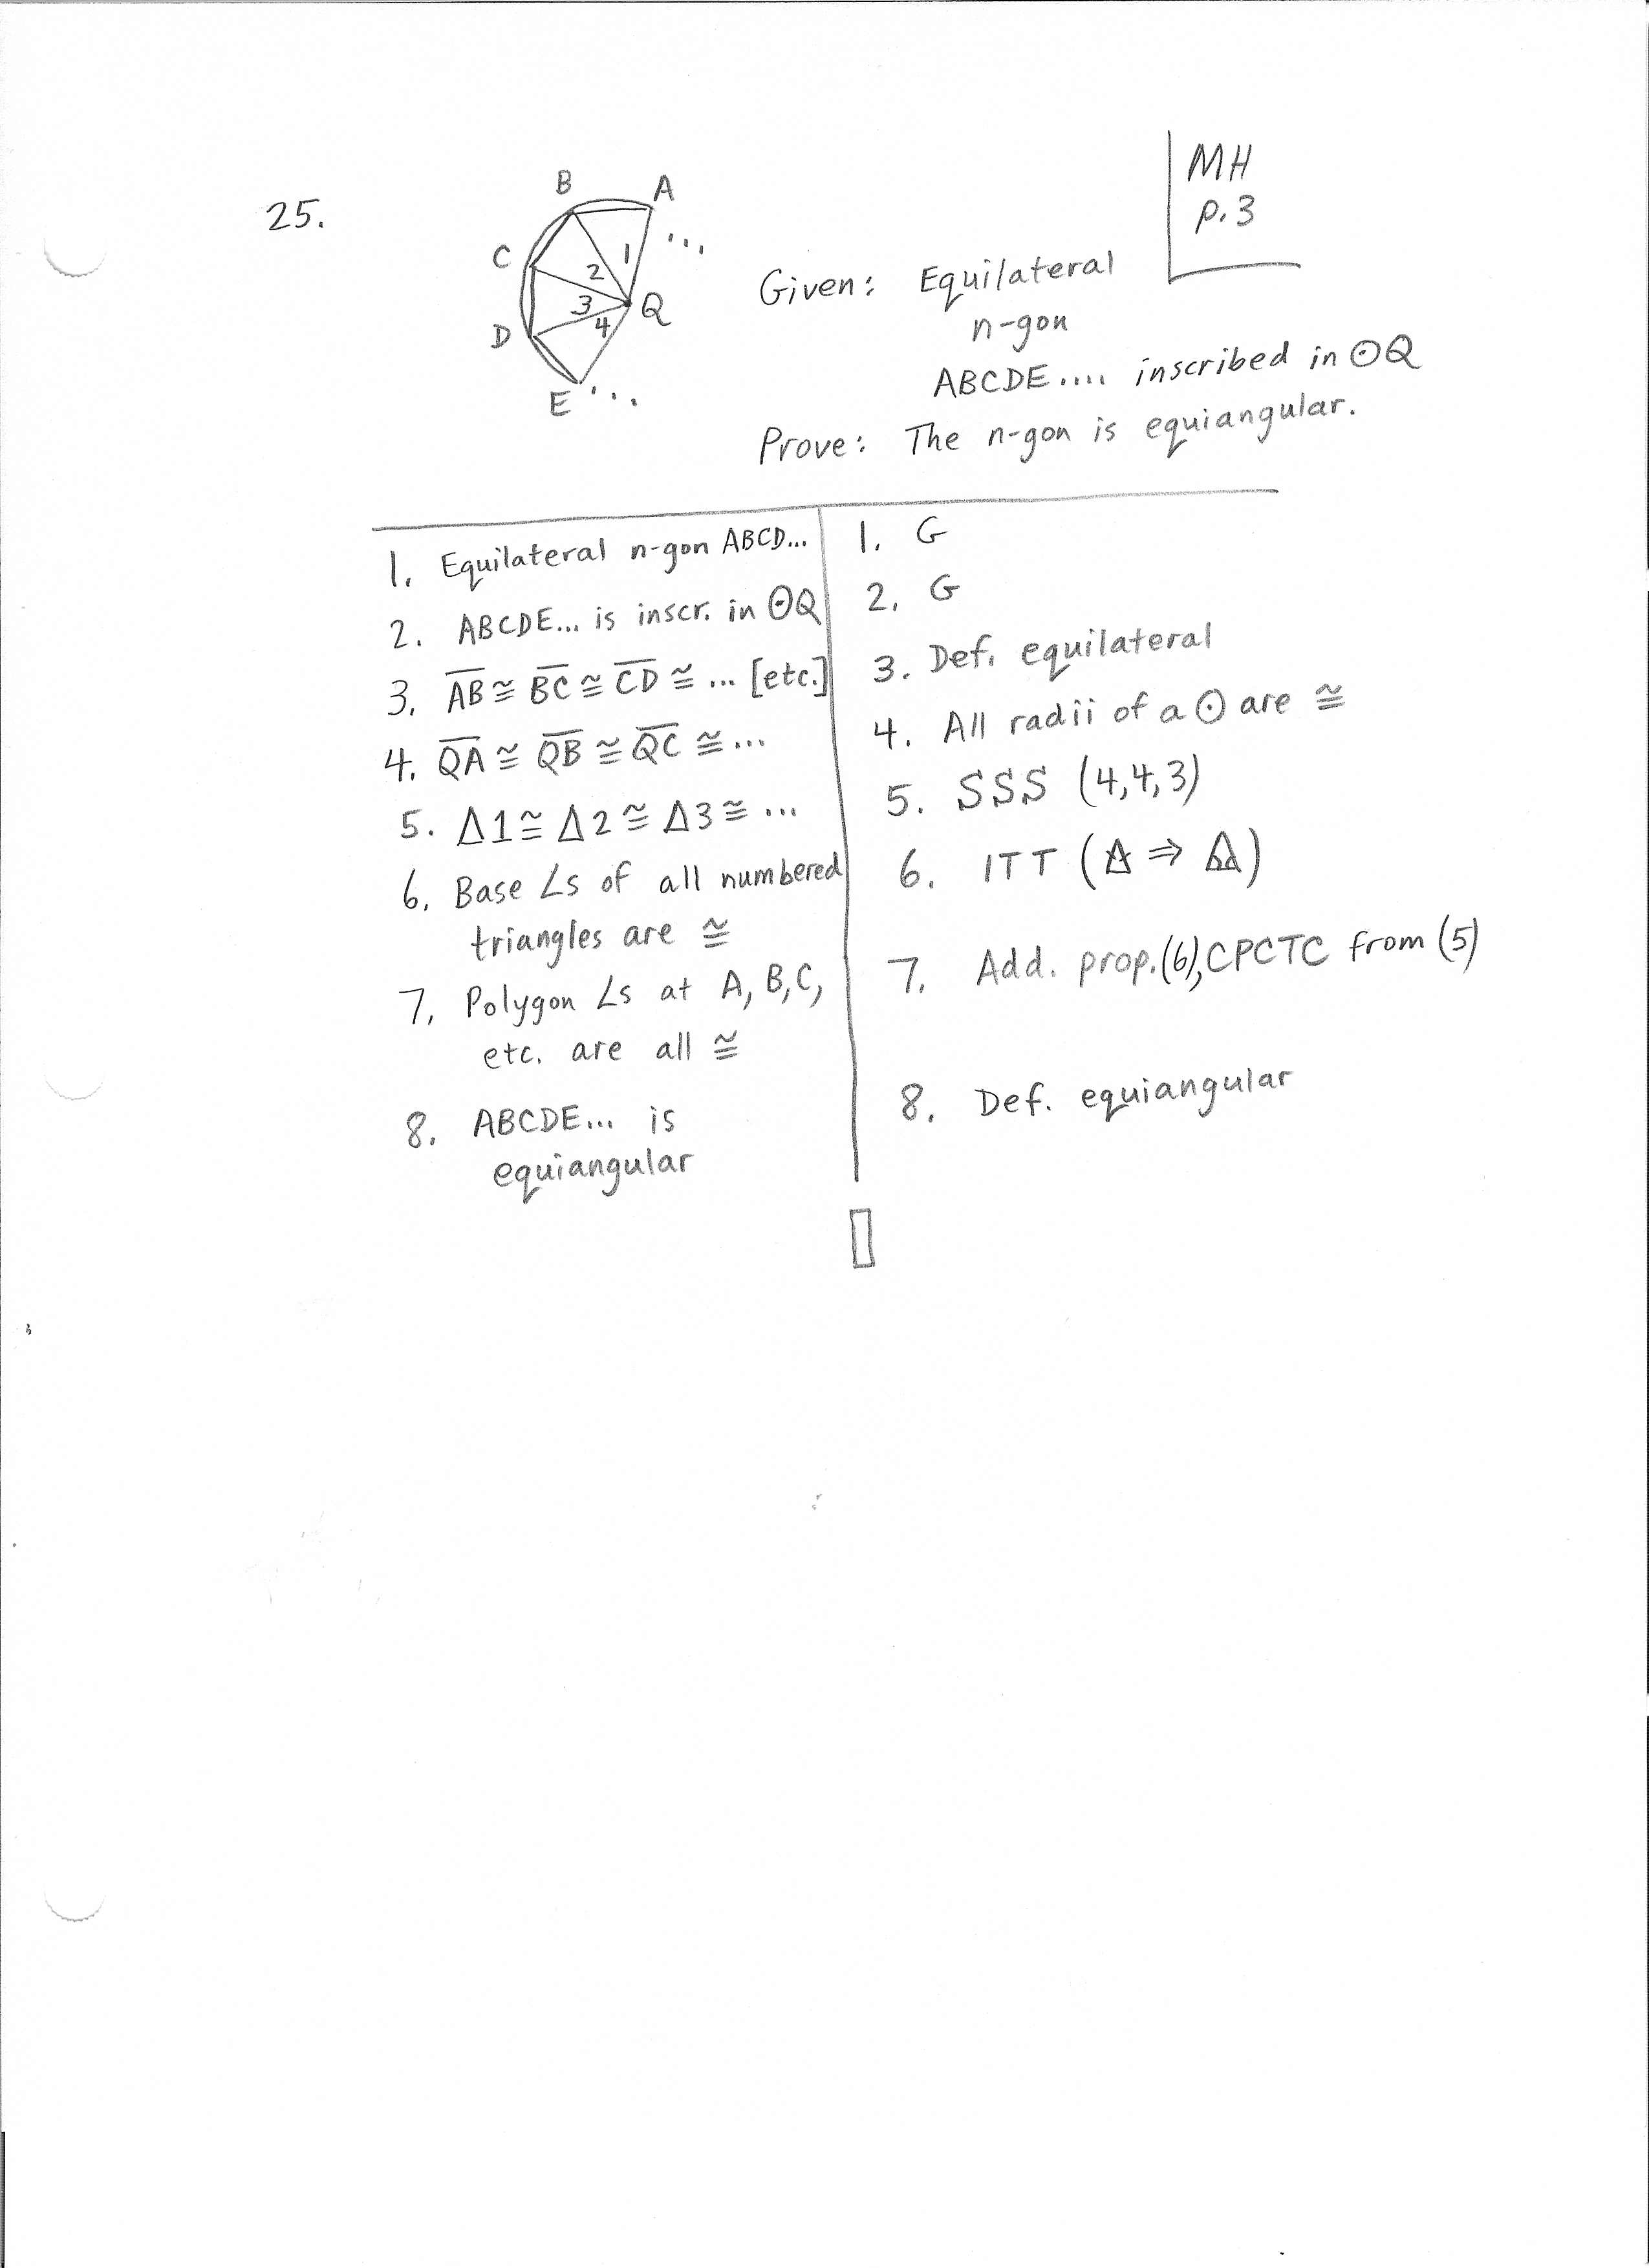 MH
p. 3
25.
B A
C
1
2
3
4
Q
D
E
...
...
Given: Equilateral
n-gon
ABCDE.... inscribed in ⊙Q
Prove: The n-gon is equiangular.
1. Equilateral n-gon ABCD... 1. G
2. ABCDE... is inscr. in ⊙Q 2. G
3. A̅B̅ ≅ B̅C̅ ≅ C̅D̅ ≅ ... [etc.] 3. Def. equilateral
4. Q̅A̅ ≅ Q̅B̅ ≅ Q̅C̅ ≅ ... 4. All radii of a ⊙ are ≅
5. Δ1 ≅ Δ2 ≅ Δ3 ≅ ... 5. SSS (4,4,3)
6. Base ∠s of all numbered 6. ITT (△ ⇒ △)
triangles are ≅
7. Polygon ∠s at A, B, C, 7. Add. prop.(6), CPCTC from (5)
etc. are all ≅
8. ABCDE... is 8. Def. equiangular
equiangular